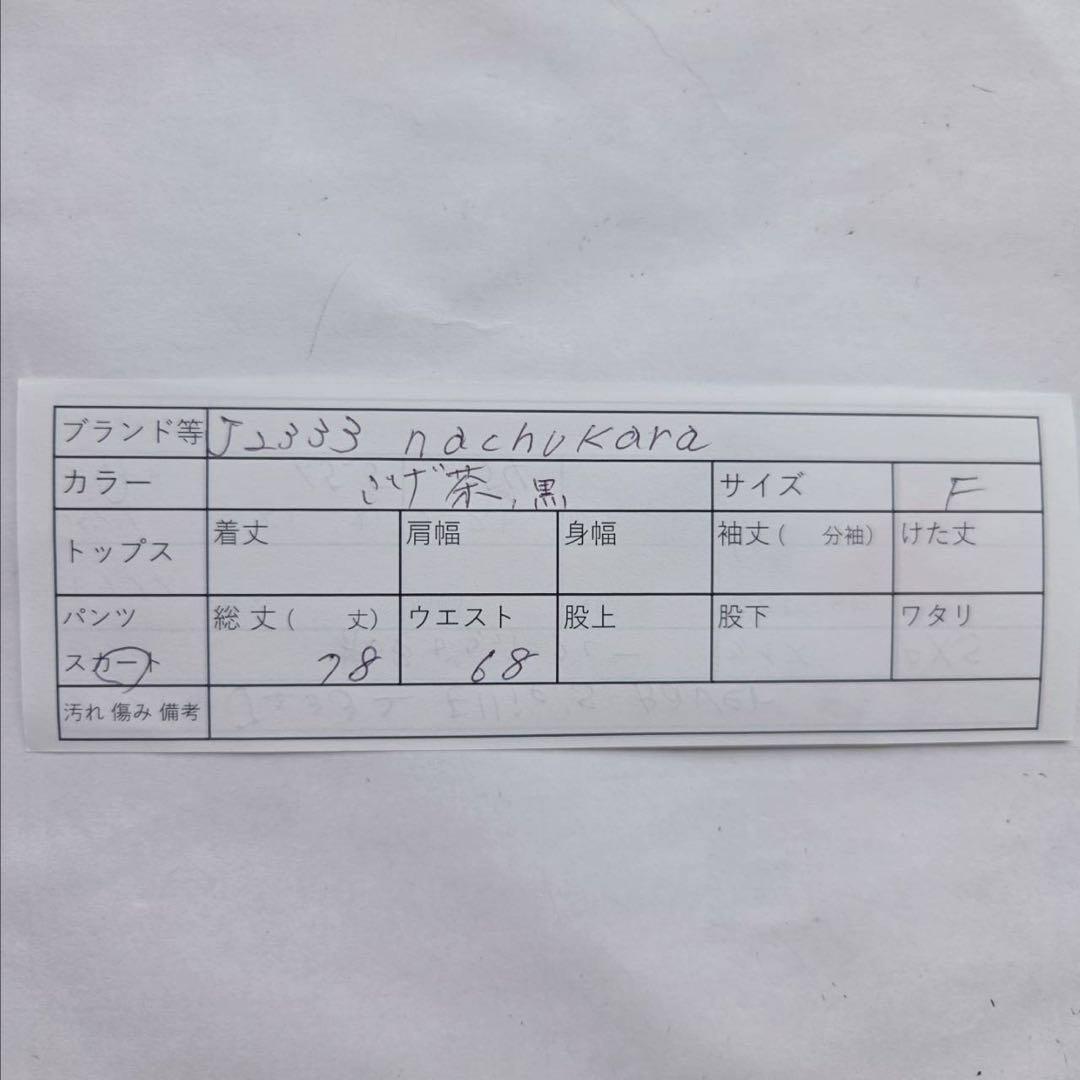 ブランド等 J2333 nachukara
カラー こげ茶、黒 サイズ F
トップス 着丈 肩幅 身幅 袖丈( 分袖) けた丈
パンツ 総丈( 丈) ウエスト 股上 股下 ワタリ
スカート 78 68
汚れ 傷み 備考